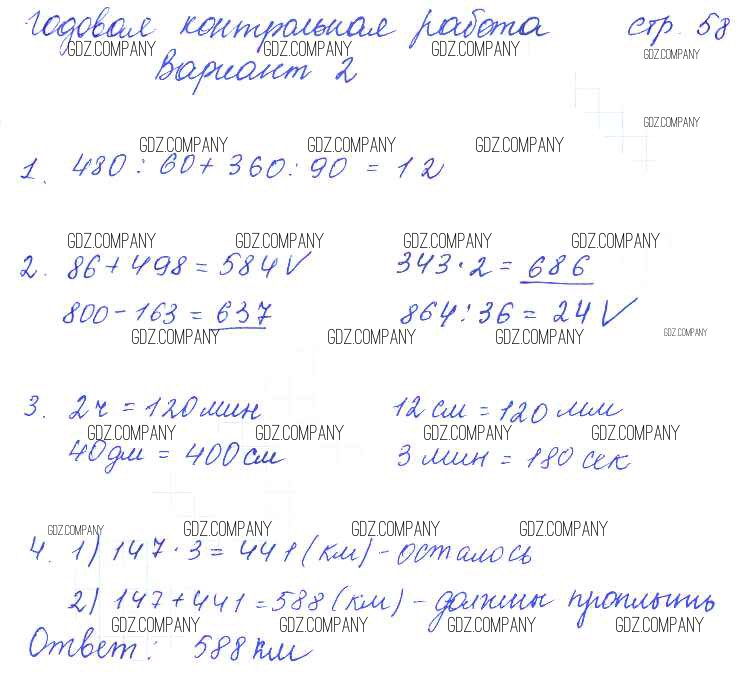 Годовая контрольная работа стр. 58
GDZ.COMPANY GDZ.COMPANY GDZ.COMPANY GDZ.COMPANY
Вариант 2
GDZ.COMPANY
GDZ.COMPANY GDZ.COMPANY GDZ.COMPANY
1. 480 : 60 + 360 : 90 = 12
GDZ.COMPANY GDZ.COMPANY GDZ.COMPANY GDZ.COMPANY
2. 86 + 498 = 584 V 343 · 2 = 686
800 - 163 = 637 864 : 36 = 24 V
GDZ.COMPANY GDZ.COMPANY GDZ.COMPANY GDZ.COMPANY
3. 2 ч = 120 мин 12 см = 120 мм
GDZ.COMPANY GDZ.COMPANY GDZ.COMPANY GDZ.COMPANY
40 дм = 400 см 3 мин = 180 сек
GDZ.COMPANY GDZ.COMPANY GDZ.COMPANY GDZ.COMPANY
4. 1) 147 · 3 = 441 (км) - осталось
2) 147 + 441 = 588 (км) - должны проплыть
GDZ.COMPANY GDZ.COMPANY GDZ.COMPANY GDZ.COMPANY
Ответ: 588 км